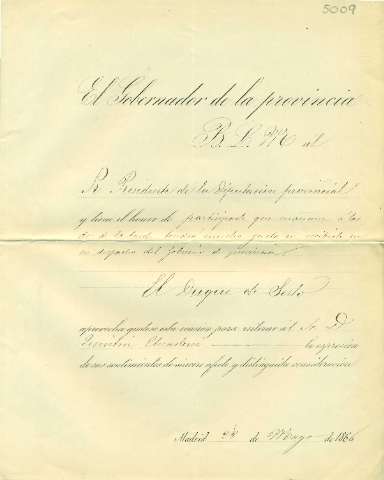 5009
El Gobernador de la provincia
B. L. M. al
Sr. Presidente de la Diputación provincial
y tiene el honor de participarle que mañana á las
de la tarde tendrá mucho gusto en recibirle en
su despacho del Gobierno de provincia
El Duque de Sesto
aprovecha gustoso esta ocasion para reiterar al Sr. D.
la espresion
de sus sentimientos de sincero afecto y distinguida consideracion
Madrid 24 de Mayo de 1866